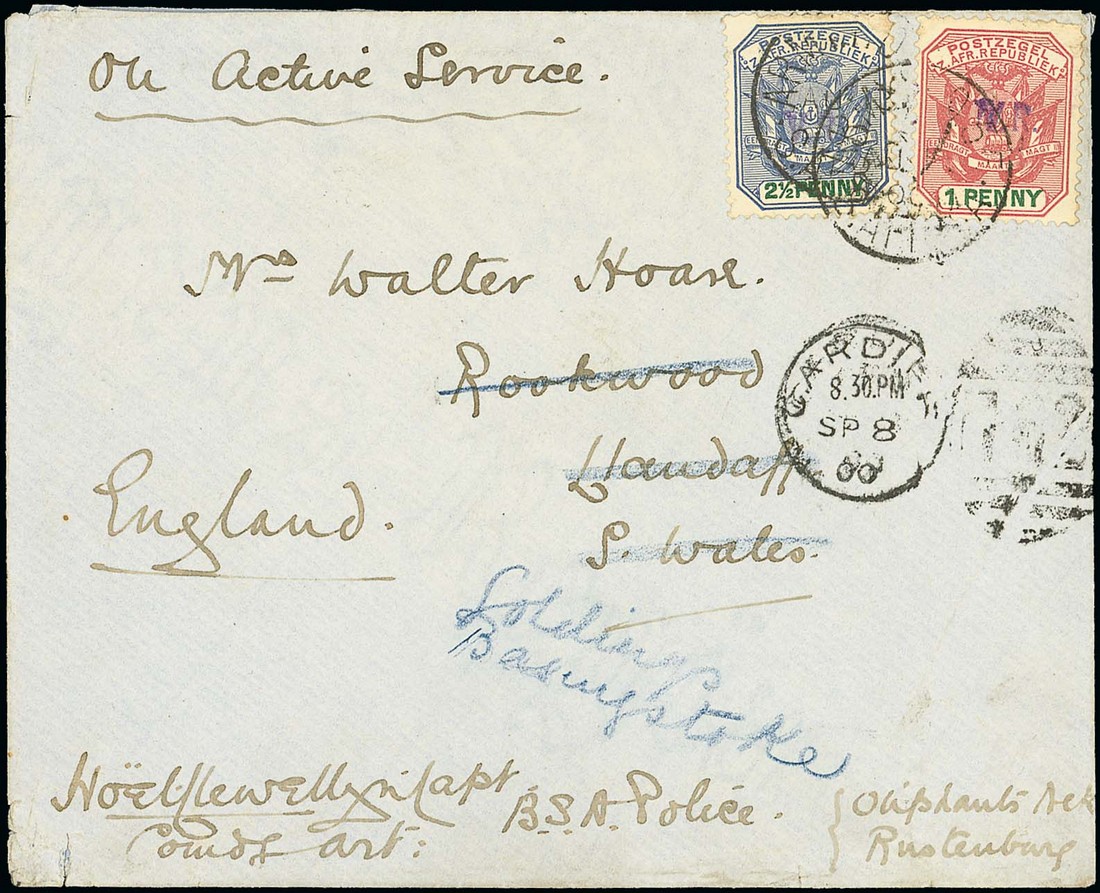 On Active Service.
POSTZEGEL
Z. AFR. REPUBLIEK
EENDRAGT MAAKT MAGT
2½ PENNY
POSTZEGEL
Z. AFR. REPUBLIEK
EENDRAGT MAAKT MAGT
1 PENNY
Mrs Walter Hoare.
Rookwood
Llandaff
S. Wales.
England.
CARDIFF
8.30.PM
SP 8
00
Basingstoke
Hoël Llewellyn Capt
Comdg Art:
B.S.A. Police.
Oliphants Nek
Rustenburg